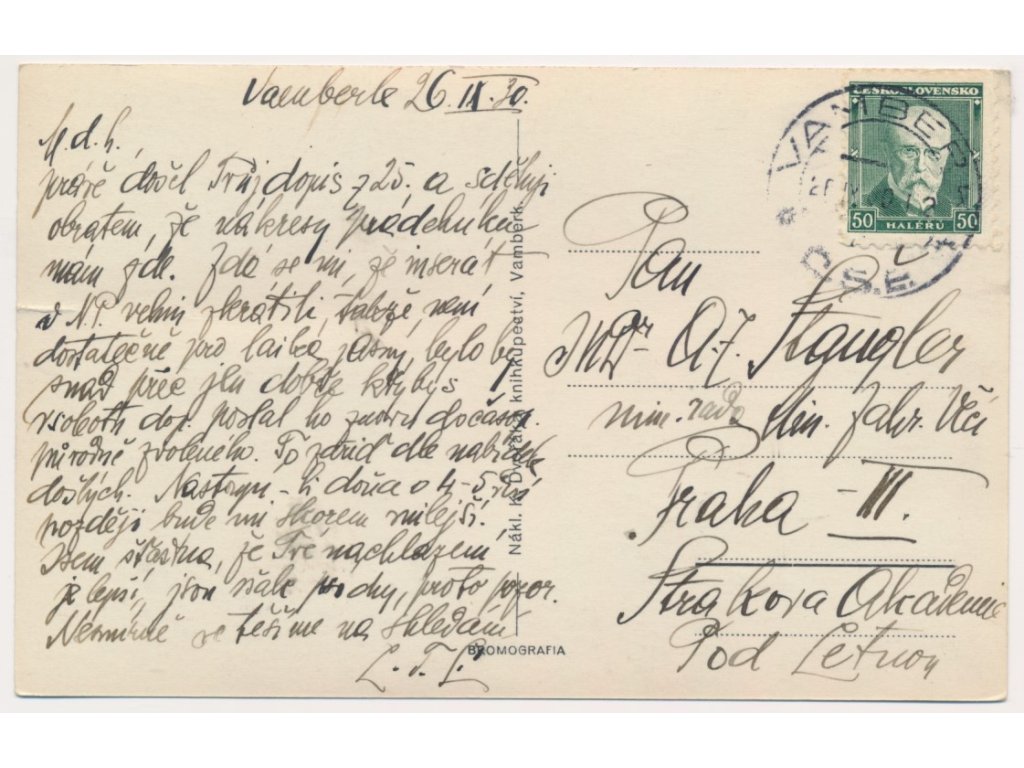 Vamberk 26.IX.30.
M. d. h.
právě došel Tvůj dopis z 25. a sděluji
obratem, že nákresy
mám zde. Zdá se mi, že inserát
v N.P. velmi zkrátili, takže není
dostatečně pro laika jasný, bylo by
snad přec jen dobře kdybys
v sobotu dop. poslal ho znovu
zvoleného. To zařiď dle nabídek
došlých. Nastoupí-li dcera o 4-5 dní
později bude mi skorem milejší.
Jsem šťastna, že Tvé nachlazení
je lepší, jsou stále proto pozor.
Nesmírně se těšíme na shledání
L. T. L.
Nákl. K. Dvořák, knihkupectví, Vamberk.
BROMOGRAFIA
ČESKOSLOVENSKO
50 HALÉŘŮ 50
VAMBER
Č.S.R.
Pan
JUDr A. J. Stangler
min. rada Min. zahr. věcí
Praha - III.
Strakova Akademie
Pod Letnou